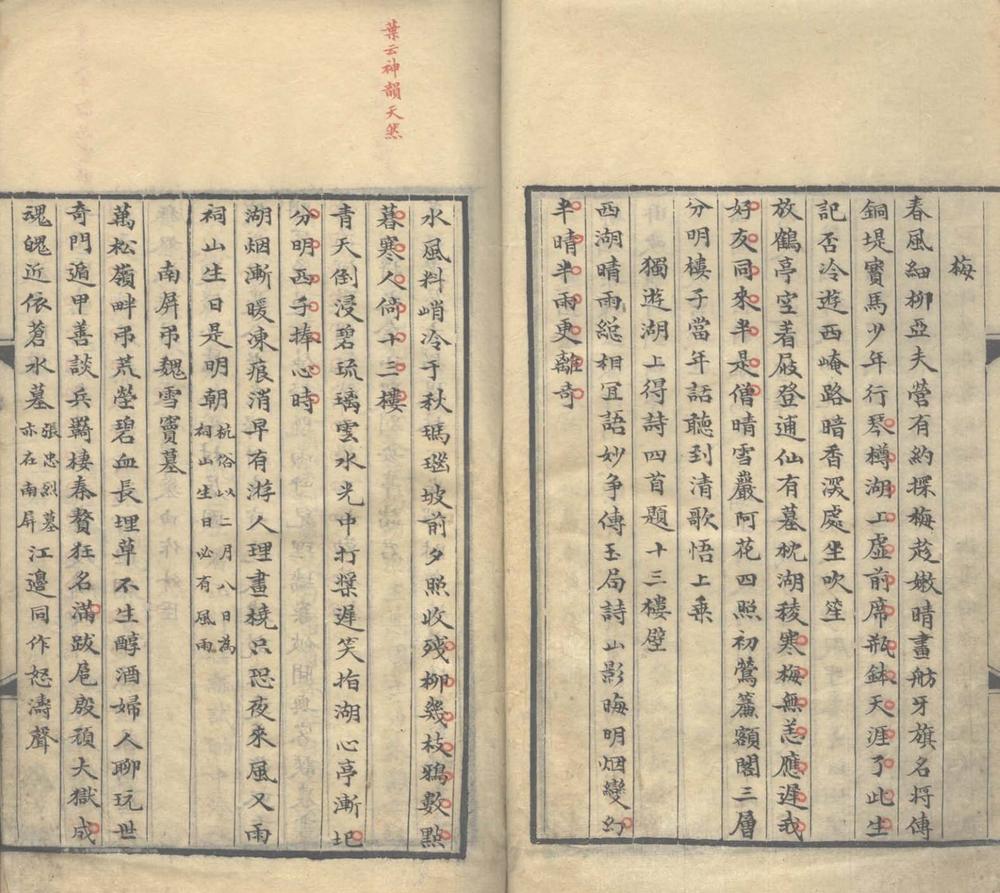 梅
春風細柳亞夫營有約探梅趁嫩晴畫舫牙旗名將傳
銅堤寶馬少年行琴樽湖上虛前席瓶鉢天涯了此生
記否冷遊西崦路暗香深處坐吹笙
放鶴亭空著屐登逋仙有墓枕湖稜寒梅無恙應遲我
好友同來半是僧晴雪巖阿花四照初鶯簾額閣三層
分明樓子當年話聽到清歌悟上乘
獨遊湖上得詩四首題十三樓壁
西湖晴雨總相冝語妙争傳玉局詩山影晦明烟變幻
半晴半雨更離奇
葉云神韻天然
水風料峭冷于秋瑪瑙坡前夕照收殘柳幾枝鴉數點
暮寒人倚十三樓
青天倒浸碧琉璃雲水光中打槳遲笑指湖心亭漸圯
分明西子捧心時
湖烟漸暖凍痕消早有游人理畫橈只恐夜來風又雨
祠山生日是明朝杭俗以二月八日為祠山生日必有風雨
南屏弔魏雪竇墓
萬松嶺畔弔荒塋碧血長埋草不生醇酒婦人聊玩世
奇門遁甲善談兵羇棲秦贅狂名滿跋扈殷頑大獄成
魂魄近依蒼水墓張忠烈墓亦在南屏江邊同作怒濤聲